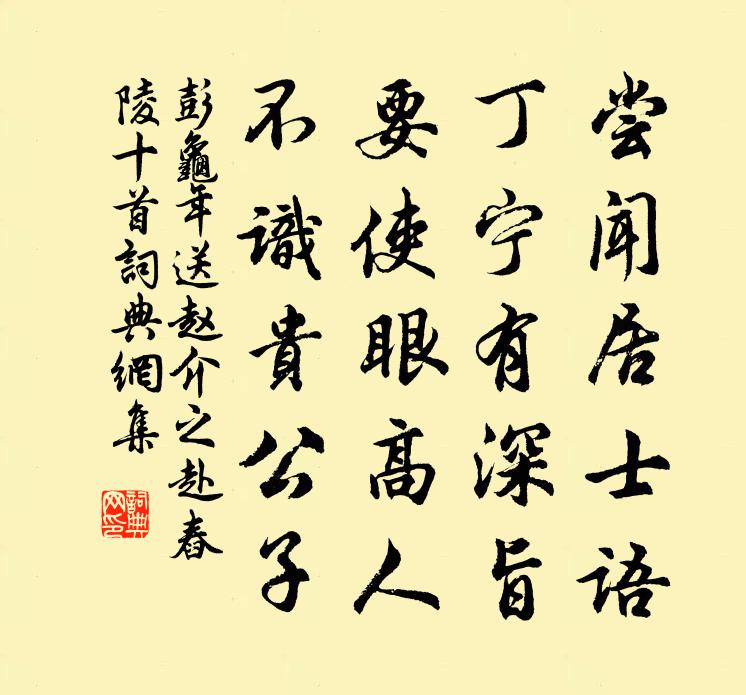 尝闻居士语
丁宁有深旨
要使眼高人
不識貴公子
彭龜年送赵介之赴舂
陵十首詞典網集
詞典網印